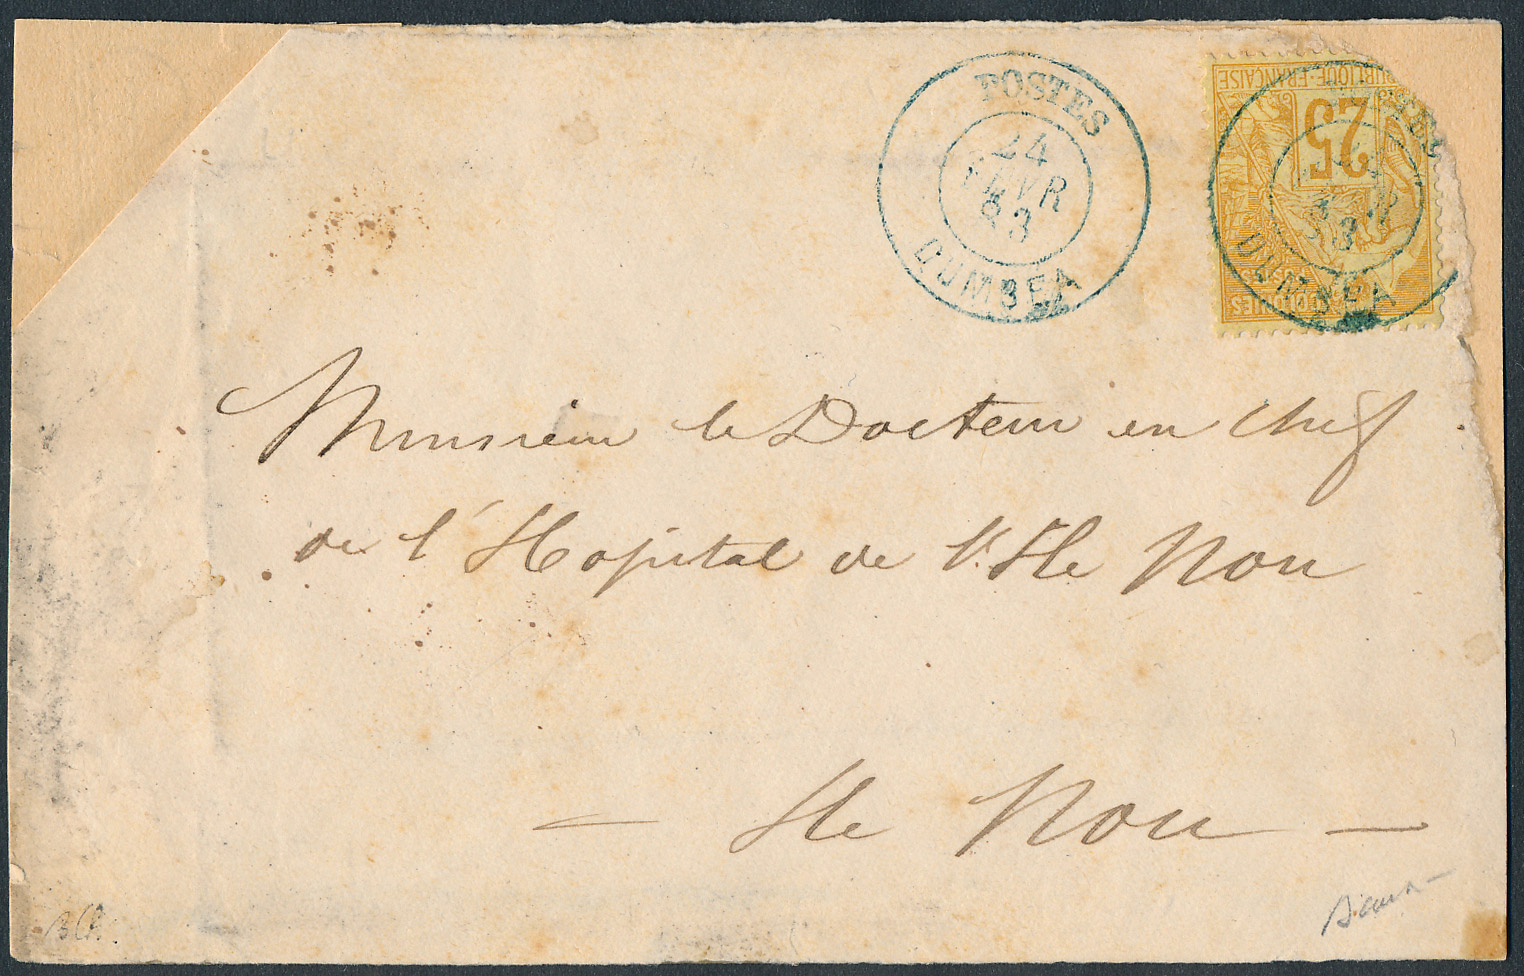 POSTES
24
FEVR
83
DUMBEA
RÉPUBLIQUE-FRANÇAISE
25
POSTES
COLONIES
83
DUMBEA
Monsieur le Docteur en Chef
de l'Hopital de l'Ile Nou
— Ile Nou —